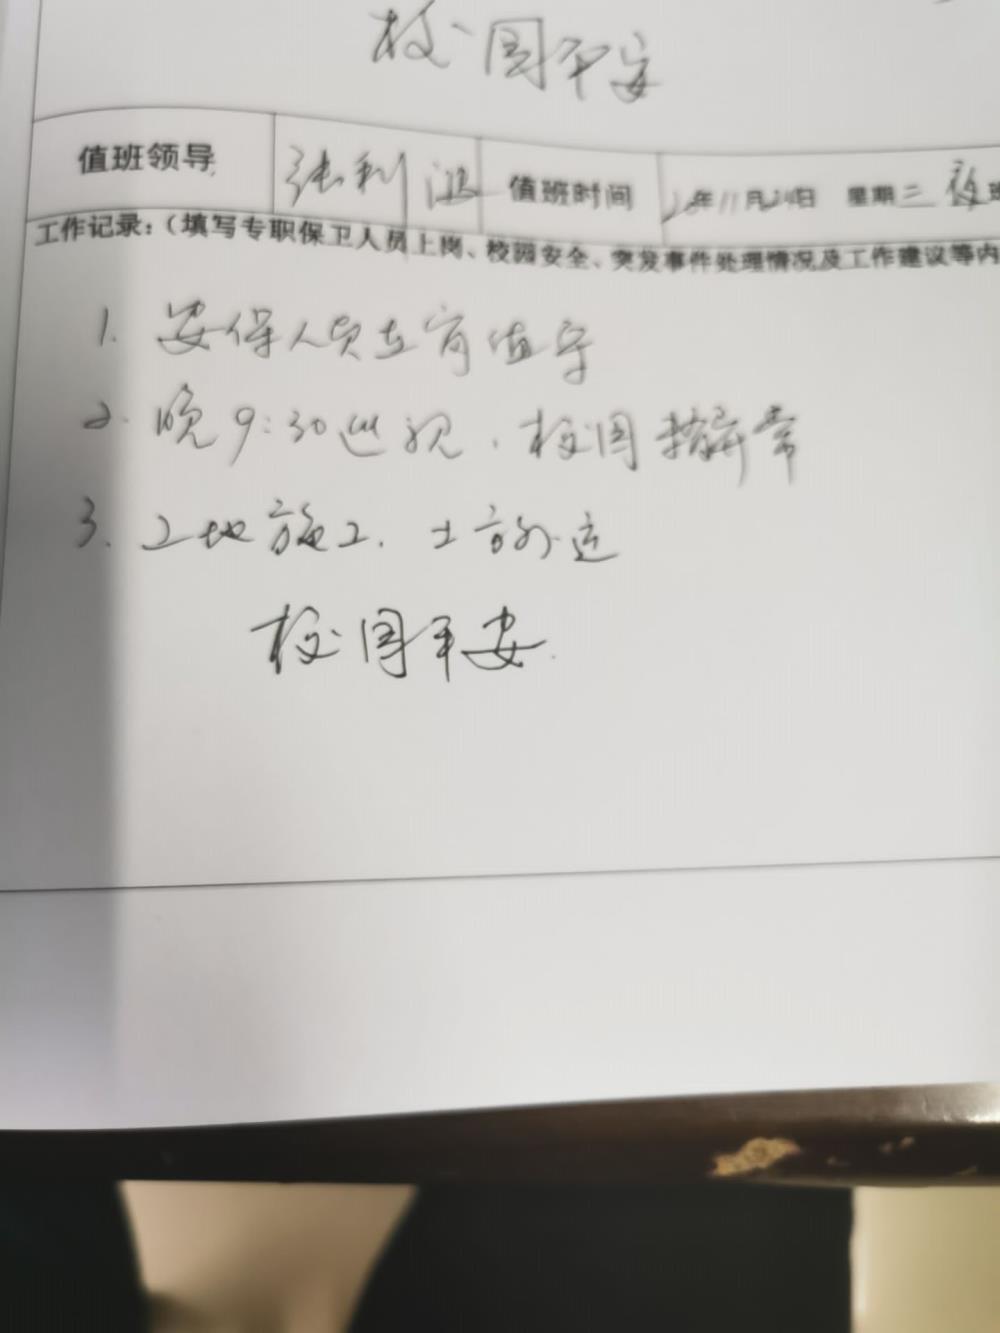 校园平安
值班领导 张利 值班时间 年11月24日 星期二 夜班
工作记录：（填写专职保卫人员上岗、校园安全、突发事件处理情况及工作建议等内
1. 安保人员在岗值守
2. 晚9:30巡视，校园无异常
3. 工地施工，土方外运
校园平安.